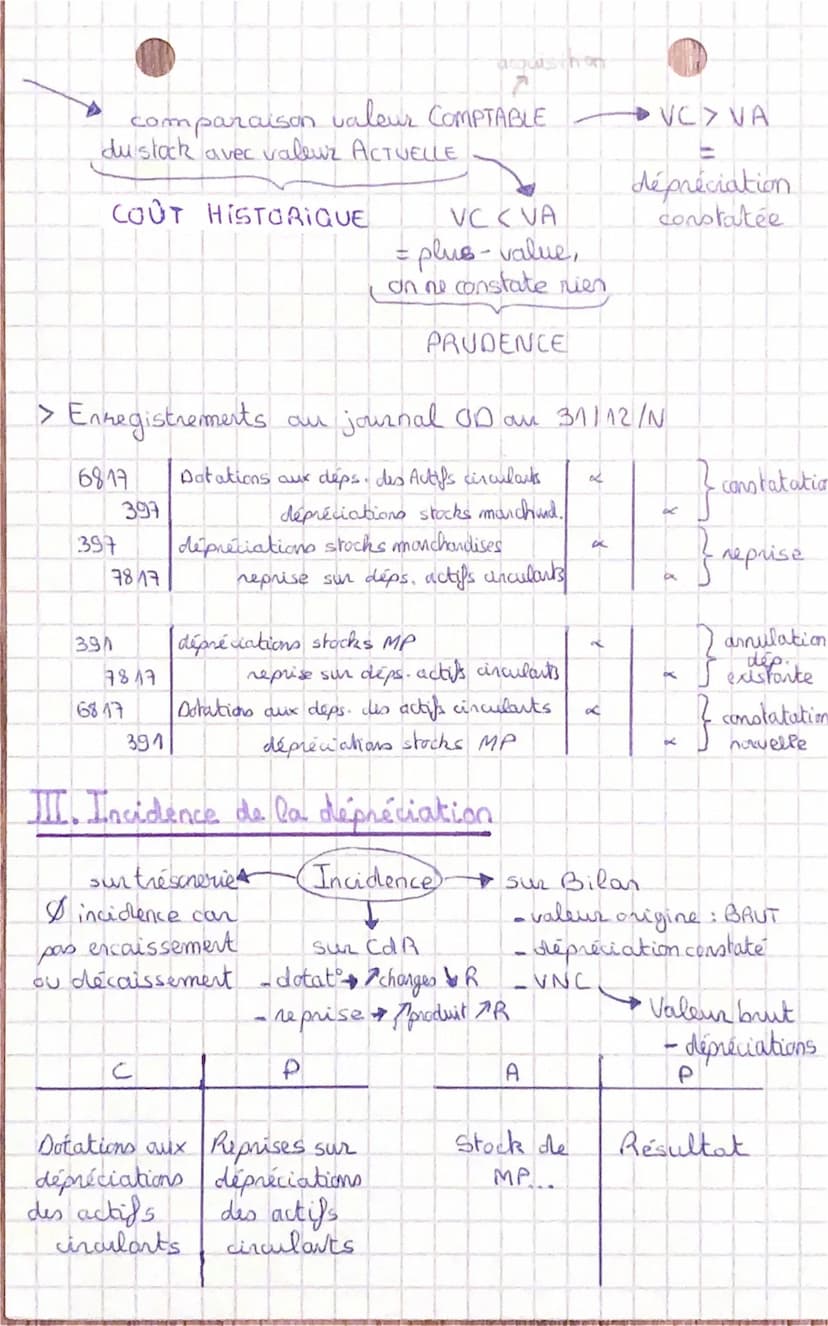 acquisition
comparaison valeur COMPTABLE → VC > VA
du stock avec valeur ACTUELLE
=
dépréciation
constatée
COÛT HISTORIQUE
VC < VA
= plus-value,
on ne constate rien
PRUDENCE
> Enregistrements au journal OD au 31/12/N
6817 Dotations aux déps. des Actifs circulants ∝
397 dépréciations stocks marchand. ∝
} constatatio
397 dépréciations stocks marchandises ∝
7817 reprise sur déps. actifs circulants ∝
} reprise
391 dépréciations stocks MP ∝
7817 reprise sur déps. actifs circulants ∝
} annulation
dép.
existante
6817 Dotations aux deps. des actifs circulants ∝
391 dépréciations stocks MP ∝
} constatation
nouvelle
III. Incidence de la dépréciation
Incidence
sur trésorerie
Ø incidence car
pas encaissement
ou décaissement
sur CdR
- dotat° → ↗ charges ↘ R
- reprise → ↗ produit ↗ R
sur Bilan
- valeur origine : BRUT
- dépréciation constaté
- VNC
→ Valeur brut
- dépréciations
C P
Dotations aux
dépréciations
des actifs
circulants
Reprises sur
dépréciations
des actifs
circulants
A P
Stock de
MP...
Résultat